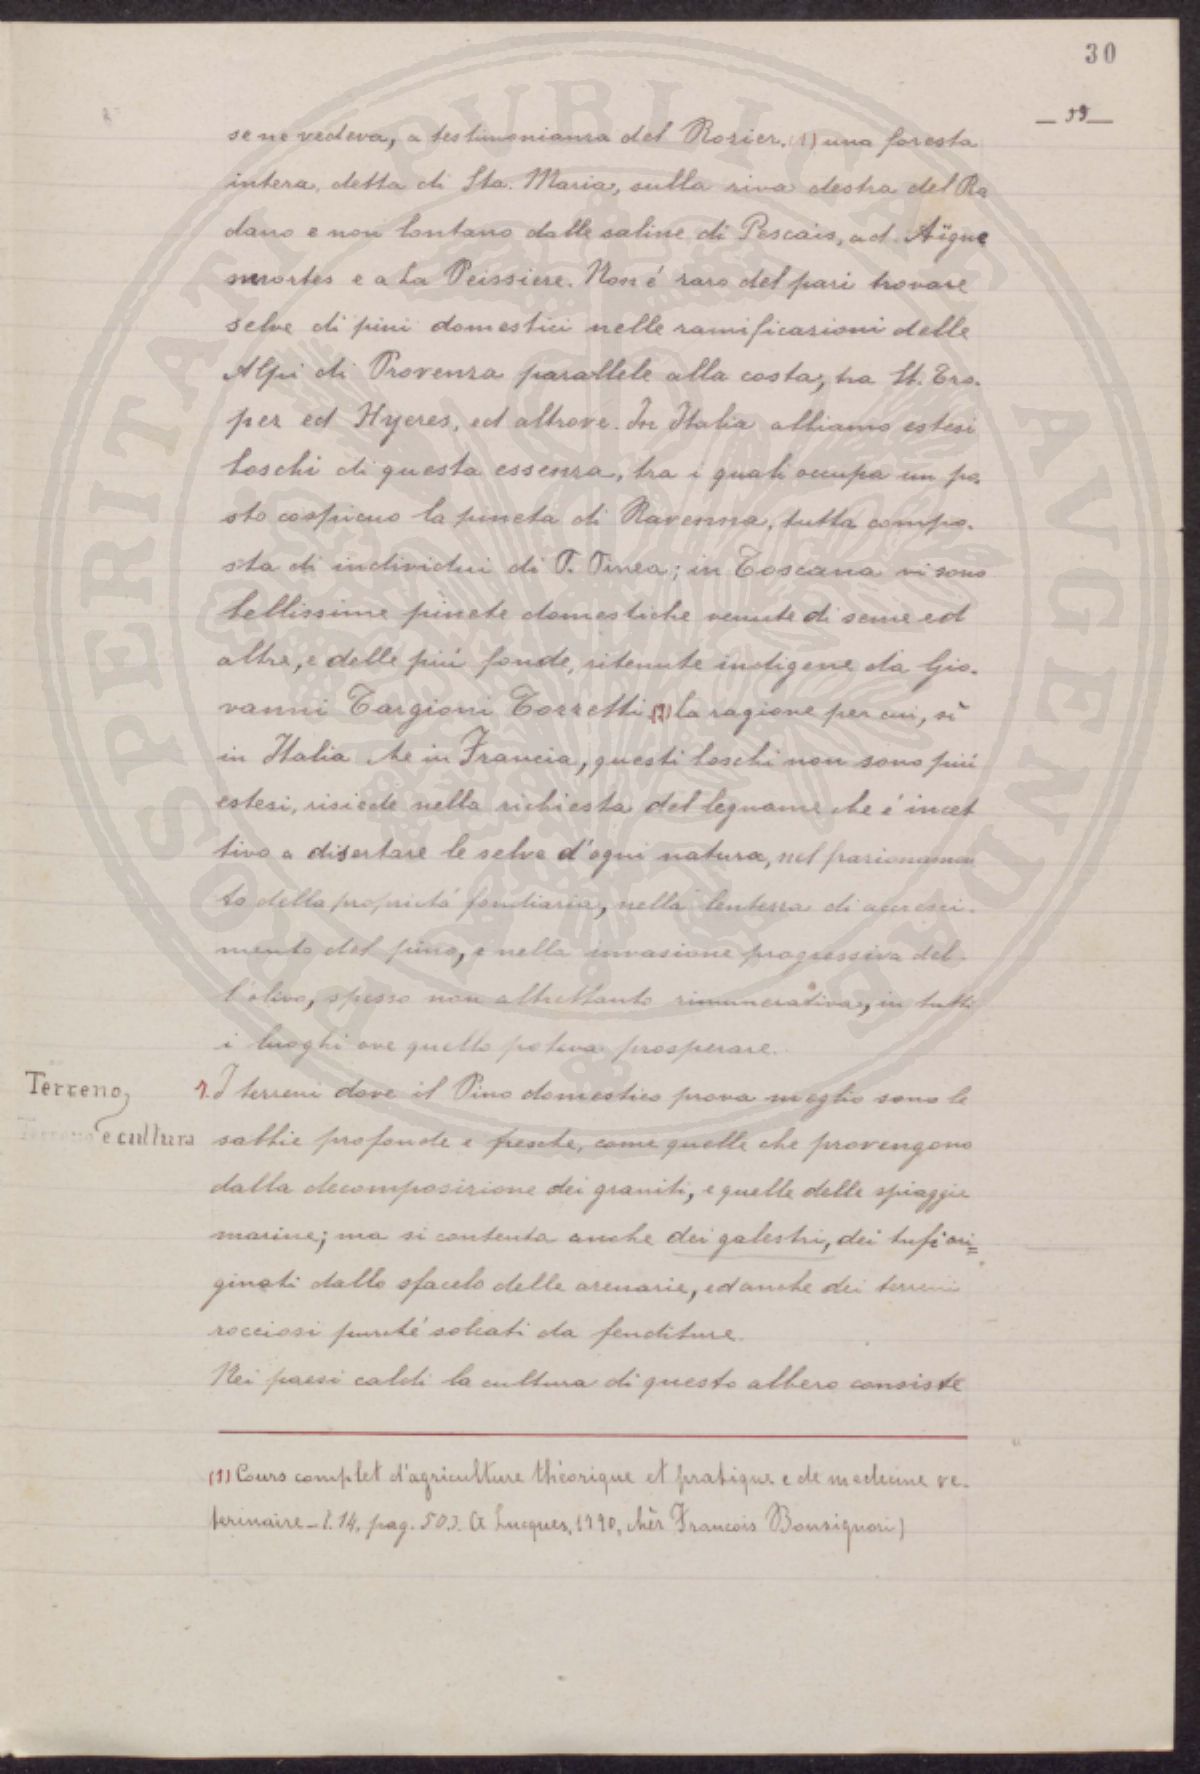 30
— 59 —
se ne vedeva, a testimonianza del Rozier, (1) una foresta
intera, detta di Sta. Maria, sulla riva destra del Ro
dano e non lontano dalle saline di Pescais, ad Aïgue
mortes e a La Peissiere. Non é raro del pari trovare
selve di pini domestici nelle ramificazioni delle
Alpi di Provenza parallele alla costa, tra St. Tro-
pez ed Hyeres, ed altrove. In Italia abbiamo estesi
boschi di questa essenza, tra i quali occupa un po-
sto cospicuo la pineta di Ravenna, tutta compo-
sta di individui di P. Pinea; in Toscana vi sono
bellissime pinete domestiche venute di seme ed
altre, e delle piú fonde, ritenute indigene da Gio-
vanni Targioni Tozzetti (2) la ragione per cui, sì
in Italia che in Francia, questi boschi non sono piú
estesi, risiede nella richiesta del legname che é incet
tivo a disertare le selve d'ogni natura, nel frazionamen
to della proprietá fondiaria, nella lentezza di accresci-
mento del pino, e nella invasione progressiva del-
l'olivo, spesso non altrettanto rimunerativa, in tutti
i luoghi ove quello poteva prosperare.
Terreno,
e cultura
I terreni dove il Pino domestico prova meglio sono le
sabbie profonde e fresche, come quelle che provengono
dalla decomposizione dei graniti, e quelle delle spiaggie
marine; ma si contenta anche dei galestri, dei tufi ori=
ginati dallo sfacelo delle arenarie, ed anche dei terreni
rocciosi purché solcati da fenditure.
Nei paesi caldi la cultura di questo albero consiste
(1) Cours complet d'agriculture théorique et pratique e de medecine ve-
terinaire – t. 14, pag. 503. A Lucques, 1790, chèr Francois Bonsignori)
SPERITATI PVBLICAE AVGENDAE